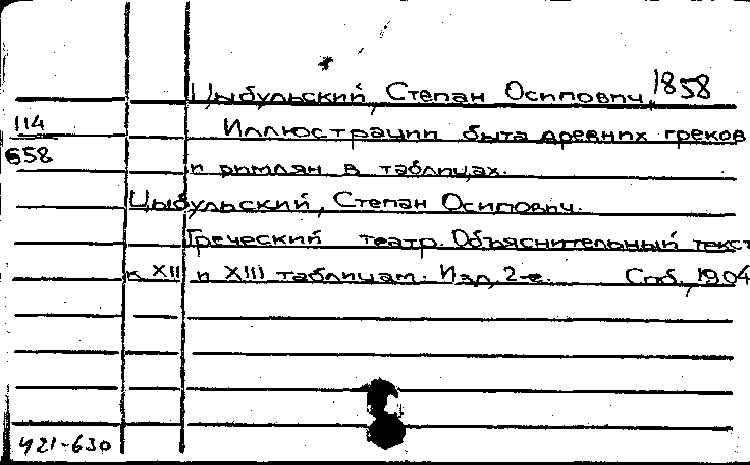 Цыбульский, Степан Осипович, 1858
114 Иллюстрации быта древних греков
658 и римлян в таблицах.
Цыбульский, Степан Осипович.
Греческий театр. Объяснительный текст
к XII и XIII таблицам. Изд. 2-е. Спб., 1904
421-630